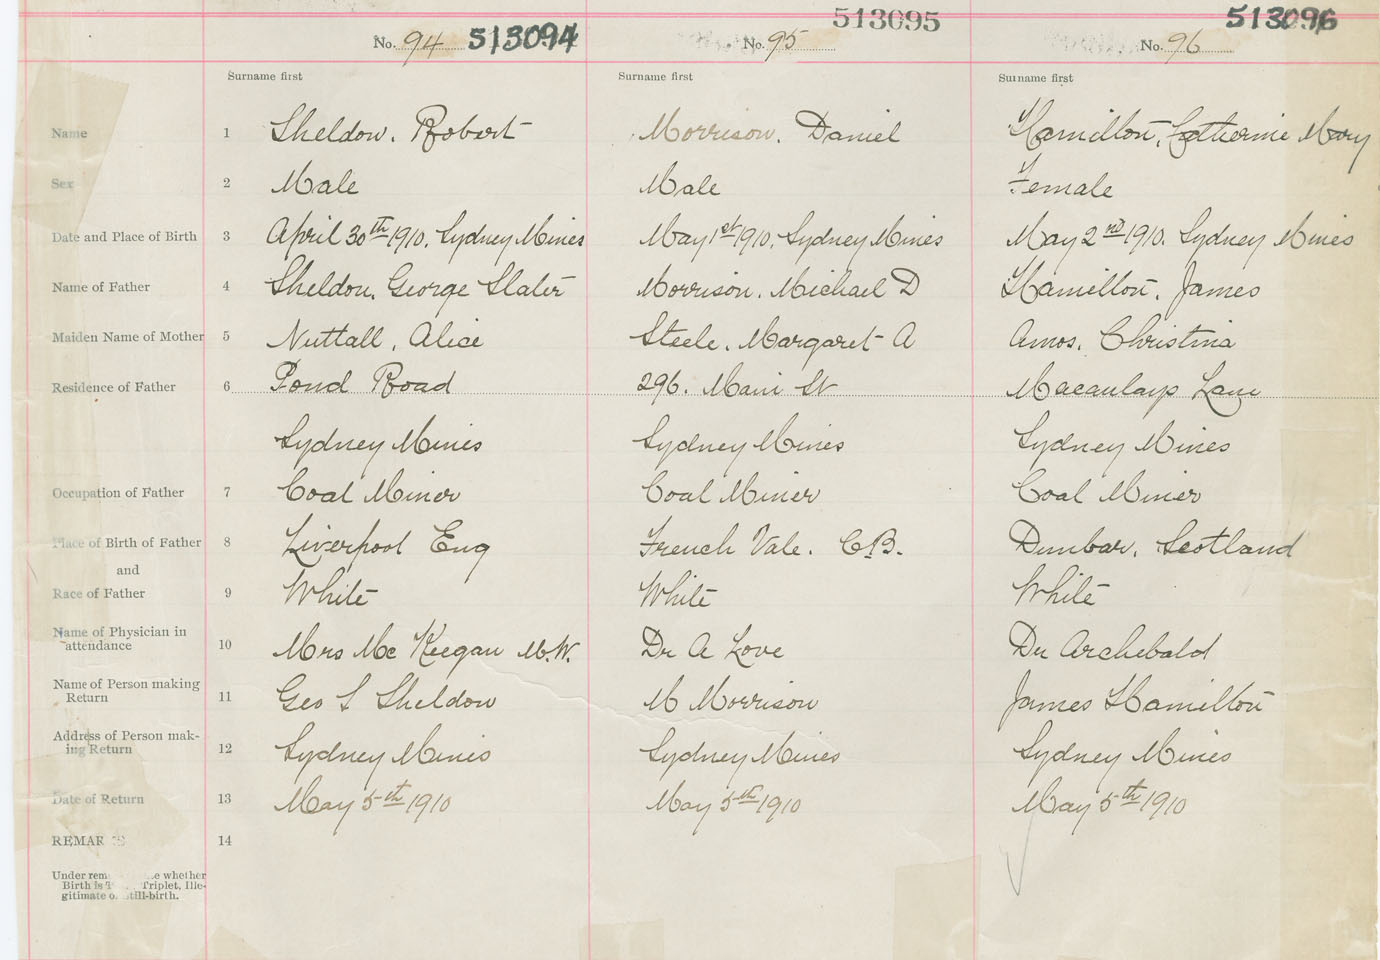 513095
No. 94 513094 No. 95 No. 96 513096
Surname first Surname first Surname first
Name 1 Sheldon. Robert Morrison. Daniel Hamilton, Catherine Mary
Sex 2 Male Male Female
Date and Place of Birth 3 April 30th 1910. Sydney Mines May 1st 1910. Sydney Mines May 2nd 1910. Sydney Mines
Name of Father 4 Sheldon. George Slater Morrison. Michael D Hamilton. James
Maiden Name of Mother 5 Nuttall, Alice Steele. Margaret A Amos. Christina
Residence of Father 6 Pond Road 296. Main St Macaulays Lane
Sydney Mines Sydney Mines Sydney Mines
Occupation of Father 7 Coal Miner Coal Miner Coal Miner
Place of Birth of Father 8 Liverpool Eng French Vale. C.B. Dunbar. Scotland
and
Race of Father 9 White White White
Name of Physician in
attendance 10 Mrs Mc Keegan M.W. Dr A Love Dr Archebald
Name of Person making
Return 11 Geo S Sheldon M Morrison James Hamilton
Address of Person mak-
ing Return 12 Sydney Mines Sydney Mines Sydney Mines
Date of Return 13 May 5th 1910 May 5th 1910 May 5th 1910
REMAR 14
Under rem e whether
Birth is T Triplet, Ille-
gitimate o still-birth.